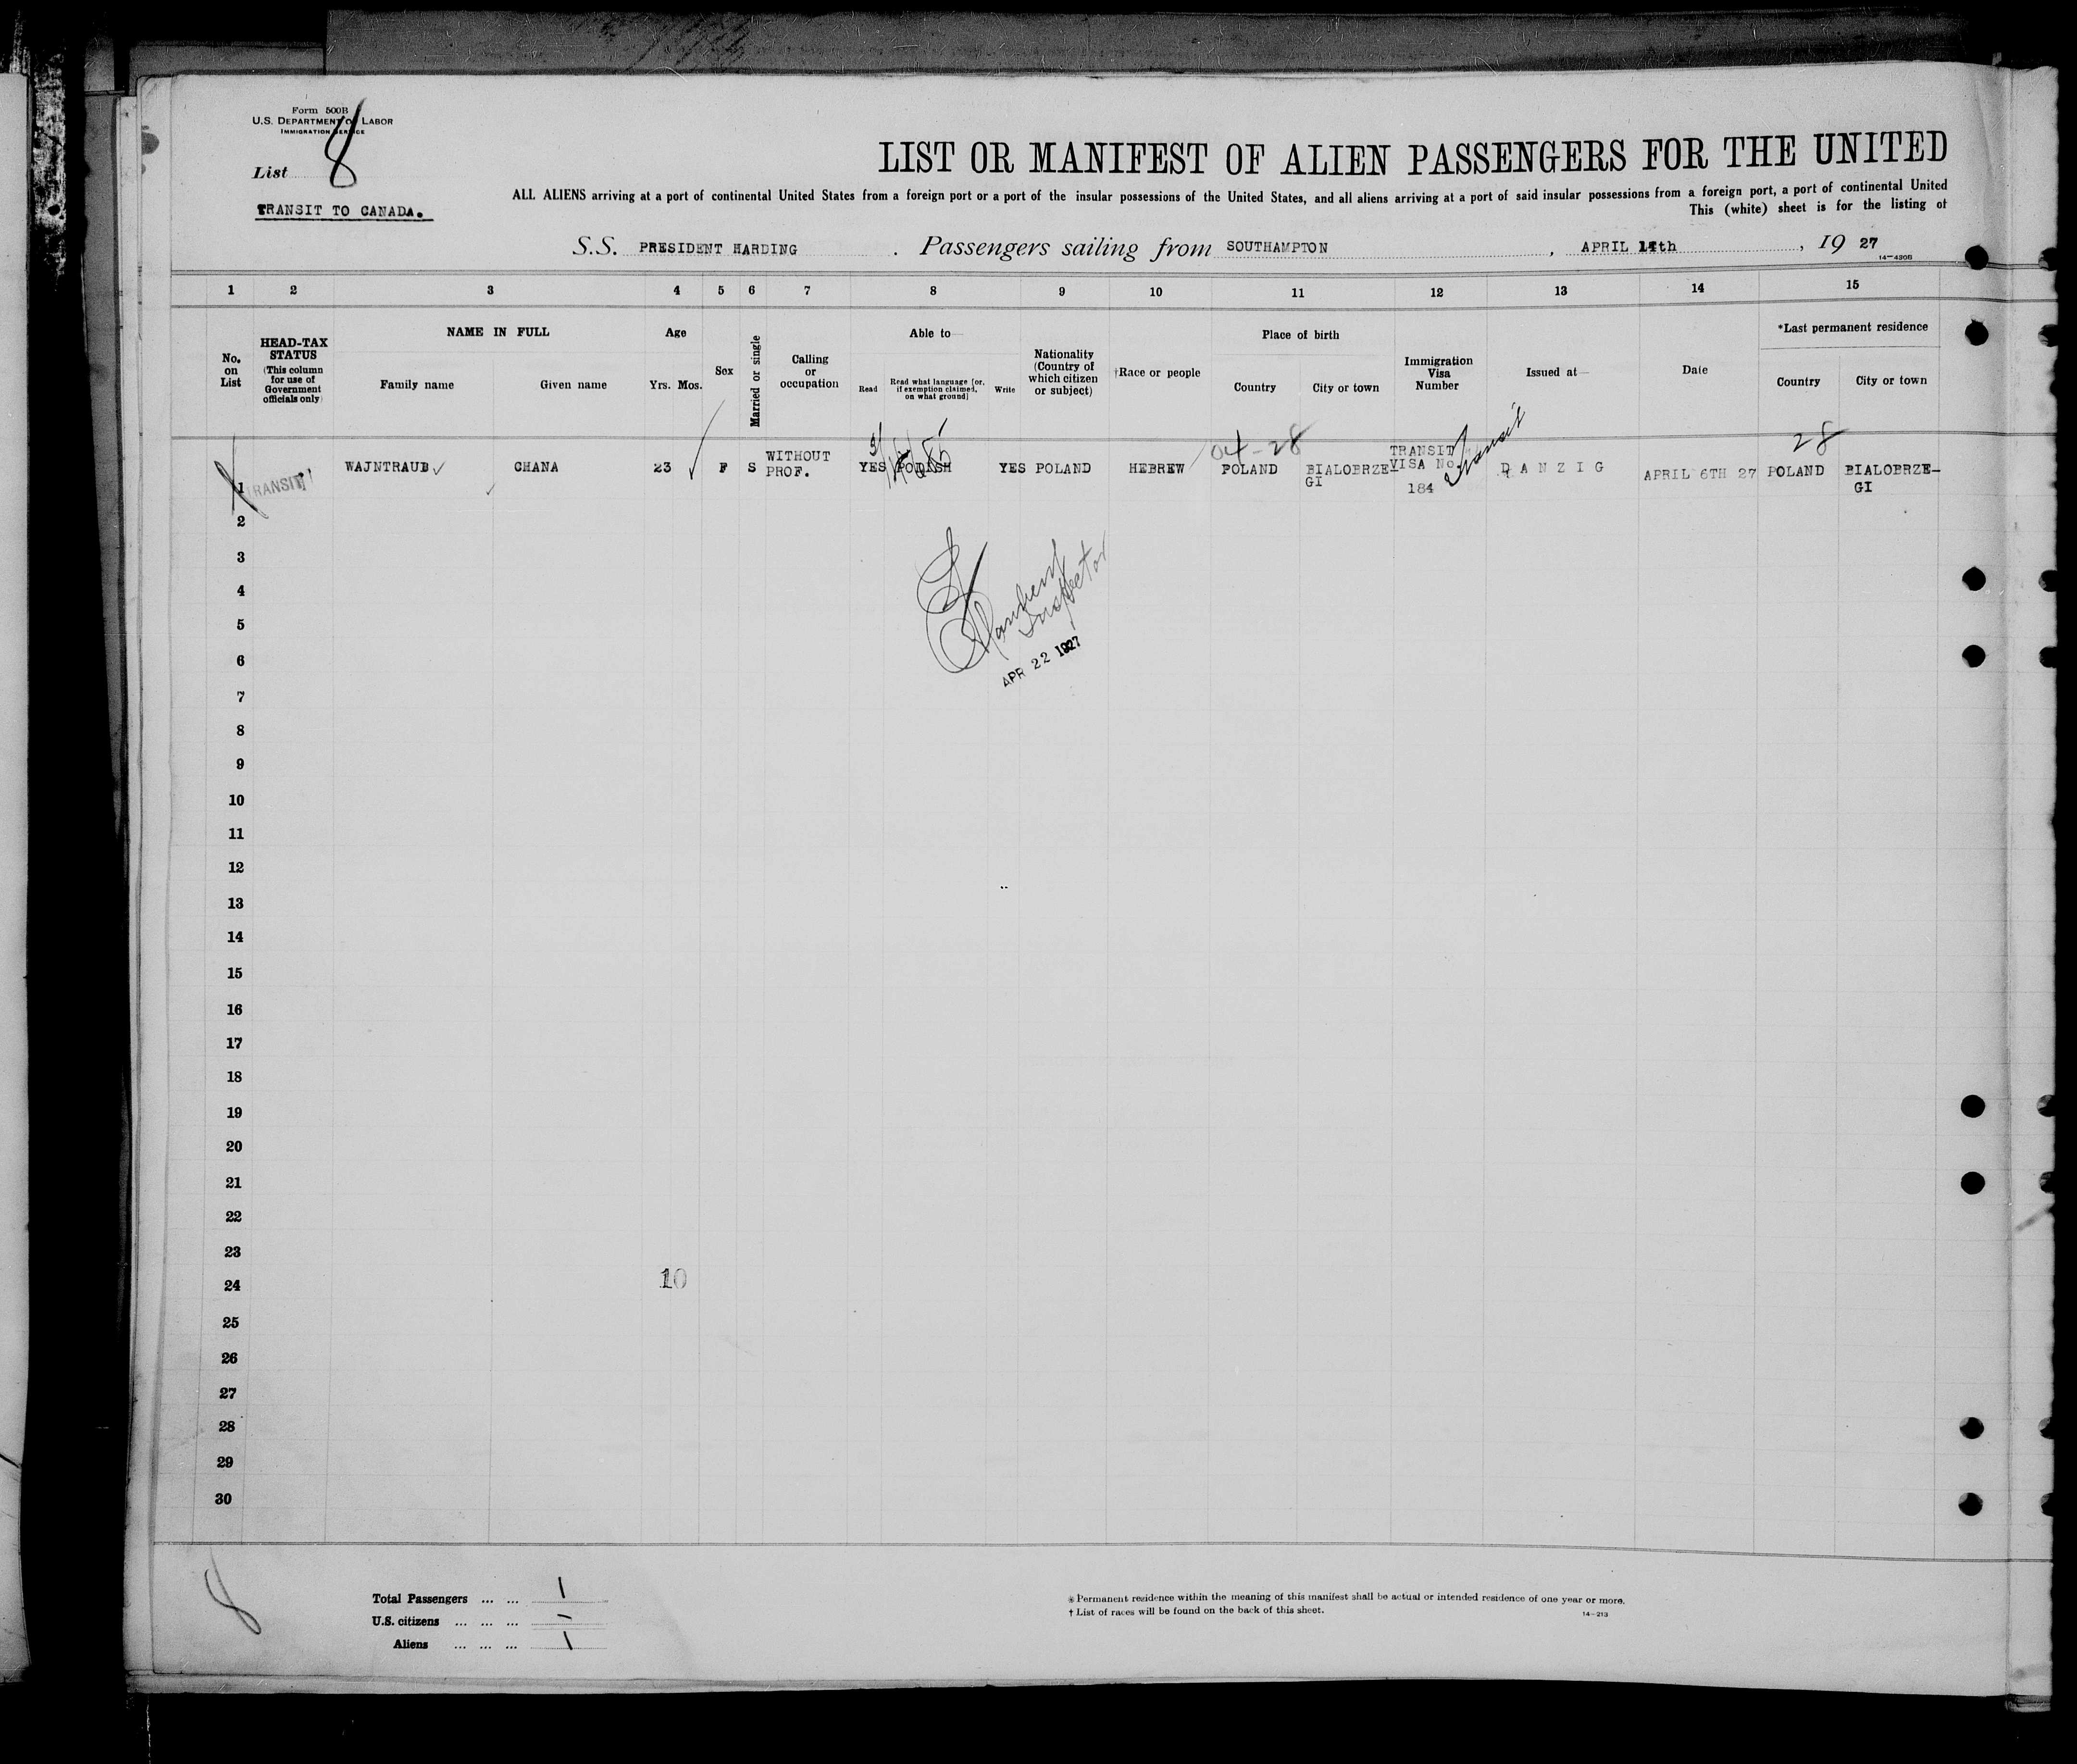 Form 500B
U.S. DEPARTMENT OF LABOR
IMMIGRATION SERVICE
List 8
TRANSIT TO CANADA.
LIST OR MANIFEST OF ALIEN PASSENGERS FOR THE UNITED
ALL ALIENS arriving at a port of continental United States from a foreign port or a port of the insular possessions of the United States, and all aliens arriving at a port of said insular possessions from a foreign port, a port of continental United
This (white) sheet is for the listing of
S.S. PRESIDENT HARDING . Passengers sailing from SOUTHAMPTON , APRIL 14th , 19 27
14-430B
1 2 3 4 5 6 7 8 9 10 11 12 13 14 15
No. on List
HEAD-TAX STATUS
(This column for use of Government officials only)
NAME IN FULL
Family name Given name
Age
Yrs. Mos.
Sex
Married or single
Calling or occupation
Able to—
Read
Read what language [or, if exemption claimed, on what ground]
Write
Nationality (Country of which citizen or subject)
†Race or people
Place of birth
Country City or town
Immigration Visa Number
Issued at—
Date
*Last permanent residence
Country City or town
04-28 Transit 28
1 TRANSIT WAJNTRAUB CHANA 23 F S WITHOUT PROF. YES POLISH YES POLAND HEBREW POLAND BIALOBRZE-GI TRANSIT VISA No. 184 DANZIG APRIL 6TH 27 POLAND BIALOBRZE-GI
2
3
4
Inspector
5
6
APR 22 1927
7
8
9
10
11
12
13
14
15
16
17
18
19
20
21
22
23
24 10
25
26
27
28
29
30
8
Total Passengers ... ... 1
U.S. citizens ... ... ... –
Aliens ... ... ... 1
* Permanent residence within the meaning of this manifest shall be actual or intended residence of one year or more.
† List of races will be found on the back of this sheet.
14-213